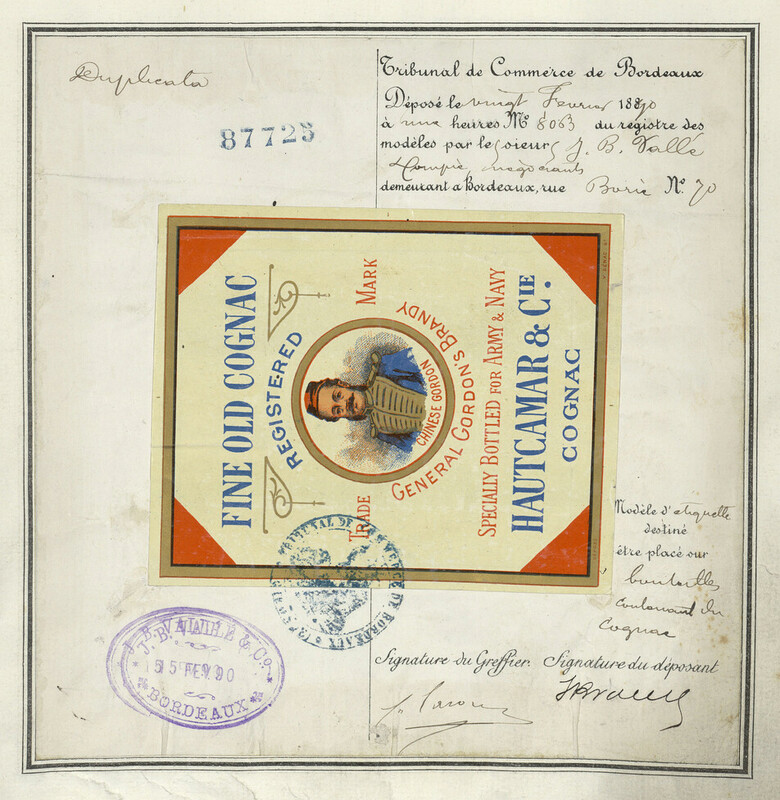 Duplicata
87725
Tribunal de Commerce de Bordeaux
Déposé le vingt Fevrier 1890
à une heures Nº 8063 du registre des
modèles par le sieurs J. B. Vallé
Compie négociants
demeurant a Bordeaux, rue Borie Nº 70
FINE OLD COGNAC
REGISTERED
TRADE MARK
CHINESE GORDON
GENERAL GORDON'S BRANDY
SPECIALLY BOTTLED FOR ARMY & NAVY
HAUTCAMAR & CIE.
COGNAC
Modèle d'etiquette
destiné
être placé sur
bouteilles
contenant du
Cognac
TRIBUNAL DE COMMERCE DE BORDEAUX
& Co.
FEV 90
BORDEAUX
Signature du Greffier. Signature du déposant